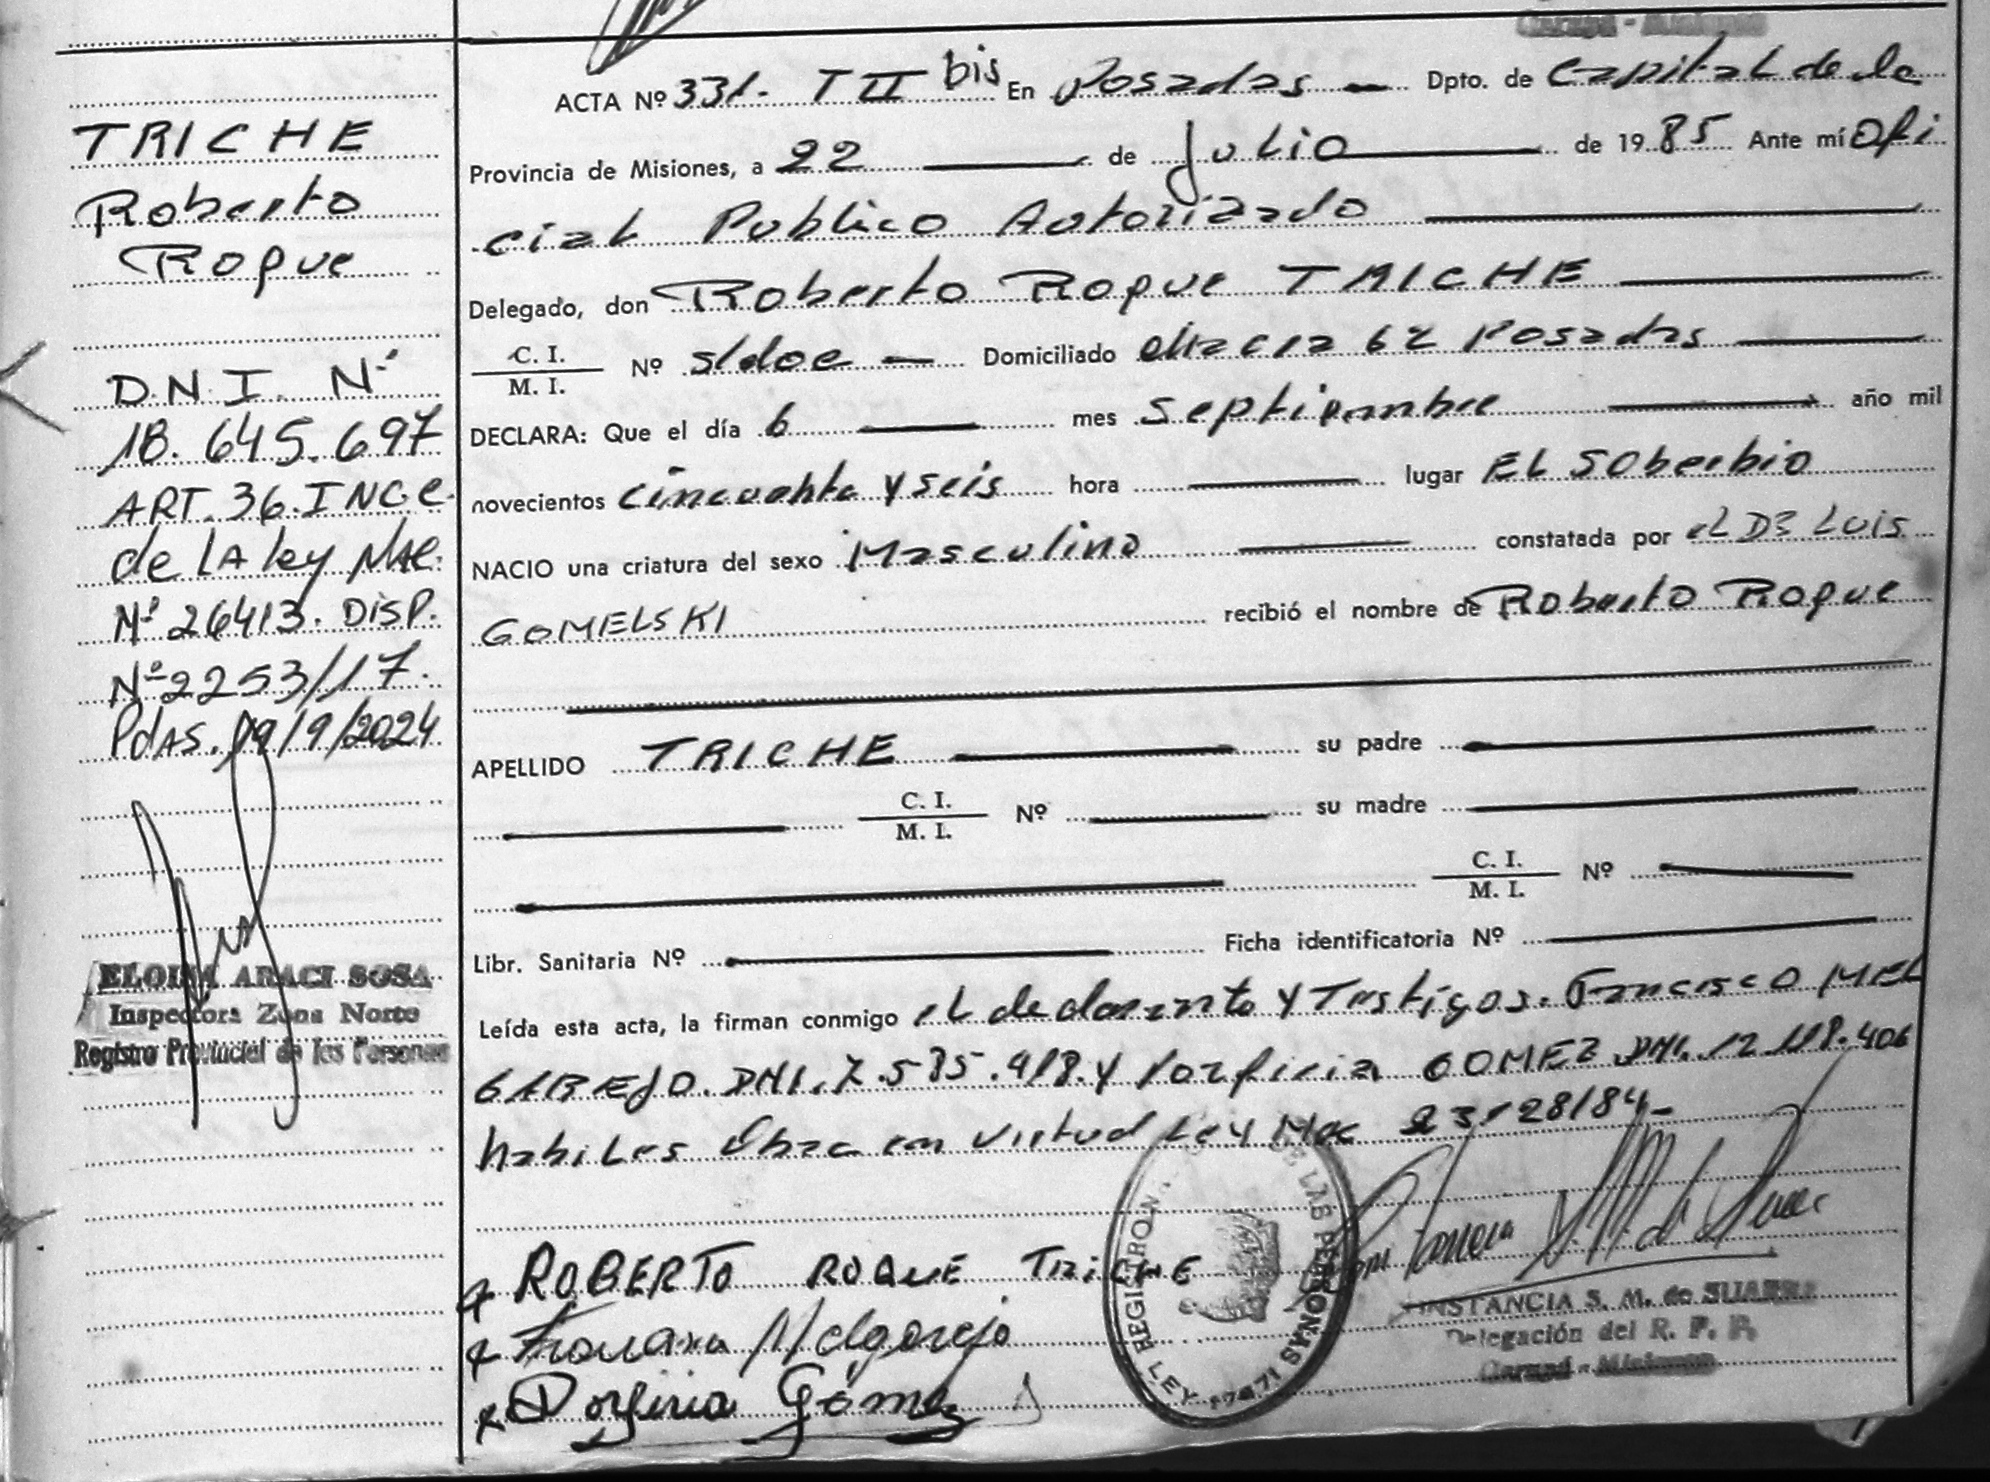 Garupá - Misiones
TRICHE
Roberto
Roque
D.N.I. Nº
18.645.697
ART.36.INC.e.
de LA Ley NAc.
Nº 26413. DISP.
Nº 2253/17.
PdAS. 09/9/2024
ELOISA ARACI SOSA
Inspectora Zona Norte
Registro Provincial de las Personas
ACTA Nº 331. T II bis En Posadas Dpto. de Capital de la
Provincia de Misiones, a 22 de Julio de 1985 Ante mí Ofi
cial Publico Autorizado
Delegado, don Roberto Roque TRICHE
C. I.
M. I. Nº s/doc Domiciliado 62 Posadas
DECLARA: Que el día 6 mes septiembre año mil
novecientos cincuenta y seis hora lugar EL Soberbio
NACIO una criatura del sexo Masculino constatada por el DR Luis
GOMELSKI recibió el nombre de Roberto Roque
APELLIDO TRICHE su padre
C. I.
M. I. Nº su madre
C. I.
M. I. Nº
Libr. Sanitaria Nº Ficha identificatoria Nº
Leída esta acta, la firman conmigo el declarante y Testigos. Francisco MEL
GAREJO. DNI. 7.535.918. y Porfiria GOMEZ DNI. 12.118.406
habiles Obra en virtud Ley Nac 23128/84
ROBERTO ROQUE TRICHE
Melgarejo
Porfiria Gómez
REGISTRO N. DE LAS PERSONAS
LEY 17671
CONSTANCIA S. M. de SUAREZ
Delegación del R. P. P.
Garupá - Misiones